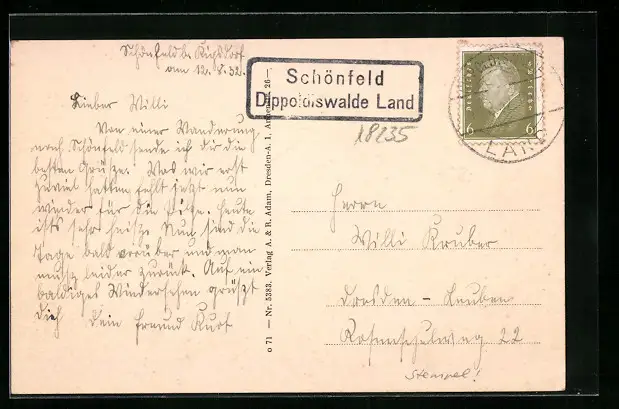 Schönfeld b. Kipsdorf
am 12.8.32.
Lieber Willi
Von einer Wanderung
nach Schönfeld sende ich dir die
besten Grüße. Was wir erst
zuviel hatten fehlt jetzt nun
wieder für die Pilze. Heute
ists sehr heisze. Nun sind die
Tage bald vorüber und man
musz leider zurück. Auf ein
baldiges Wiedersehen grüszt
dich Dein Freund Kurt
Schönfeld
Dippoldiswalde Land
18235
o 71 — Nr. 5383. Verlag A. & R. Adam, Dresden-A. 1, 26—
6 6
LAND
Herrn
Willi Kruber
Dresden - Leuben
Rosenschulweg 22
Stempel!